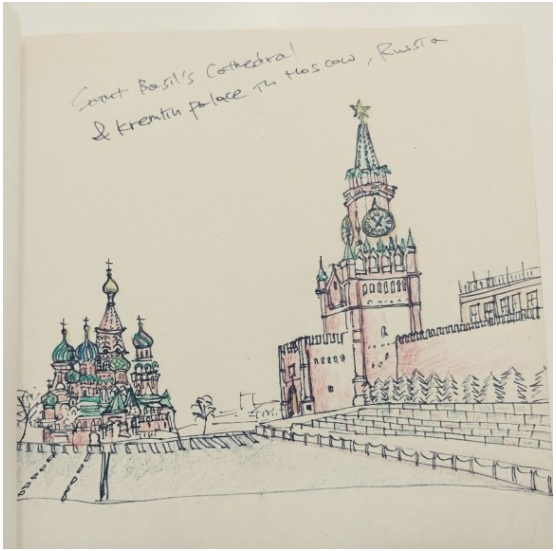 Saint Basil's Cathedral
& Kremlin palace in Moscow, Russia